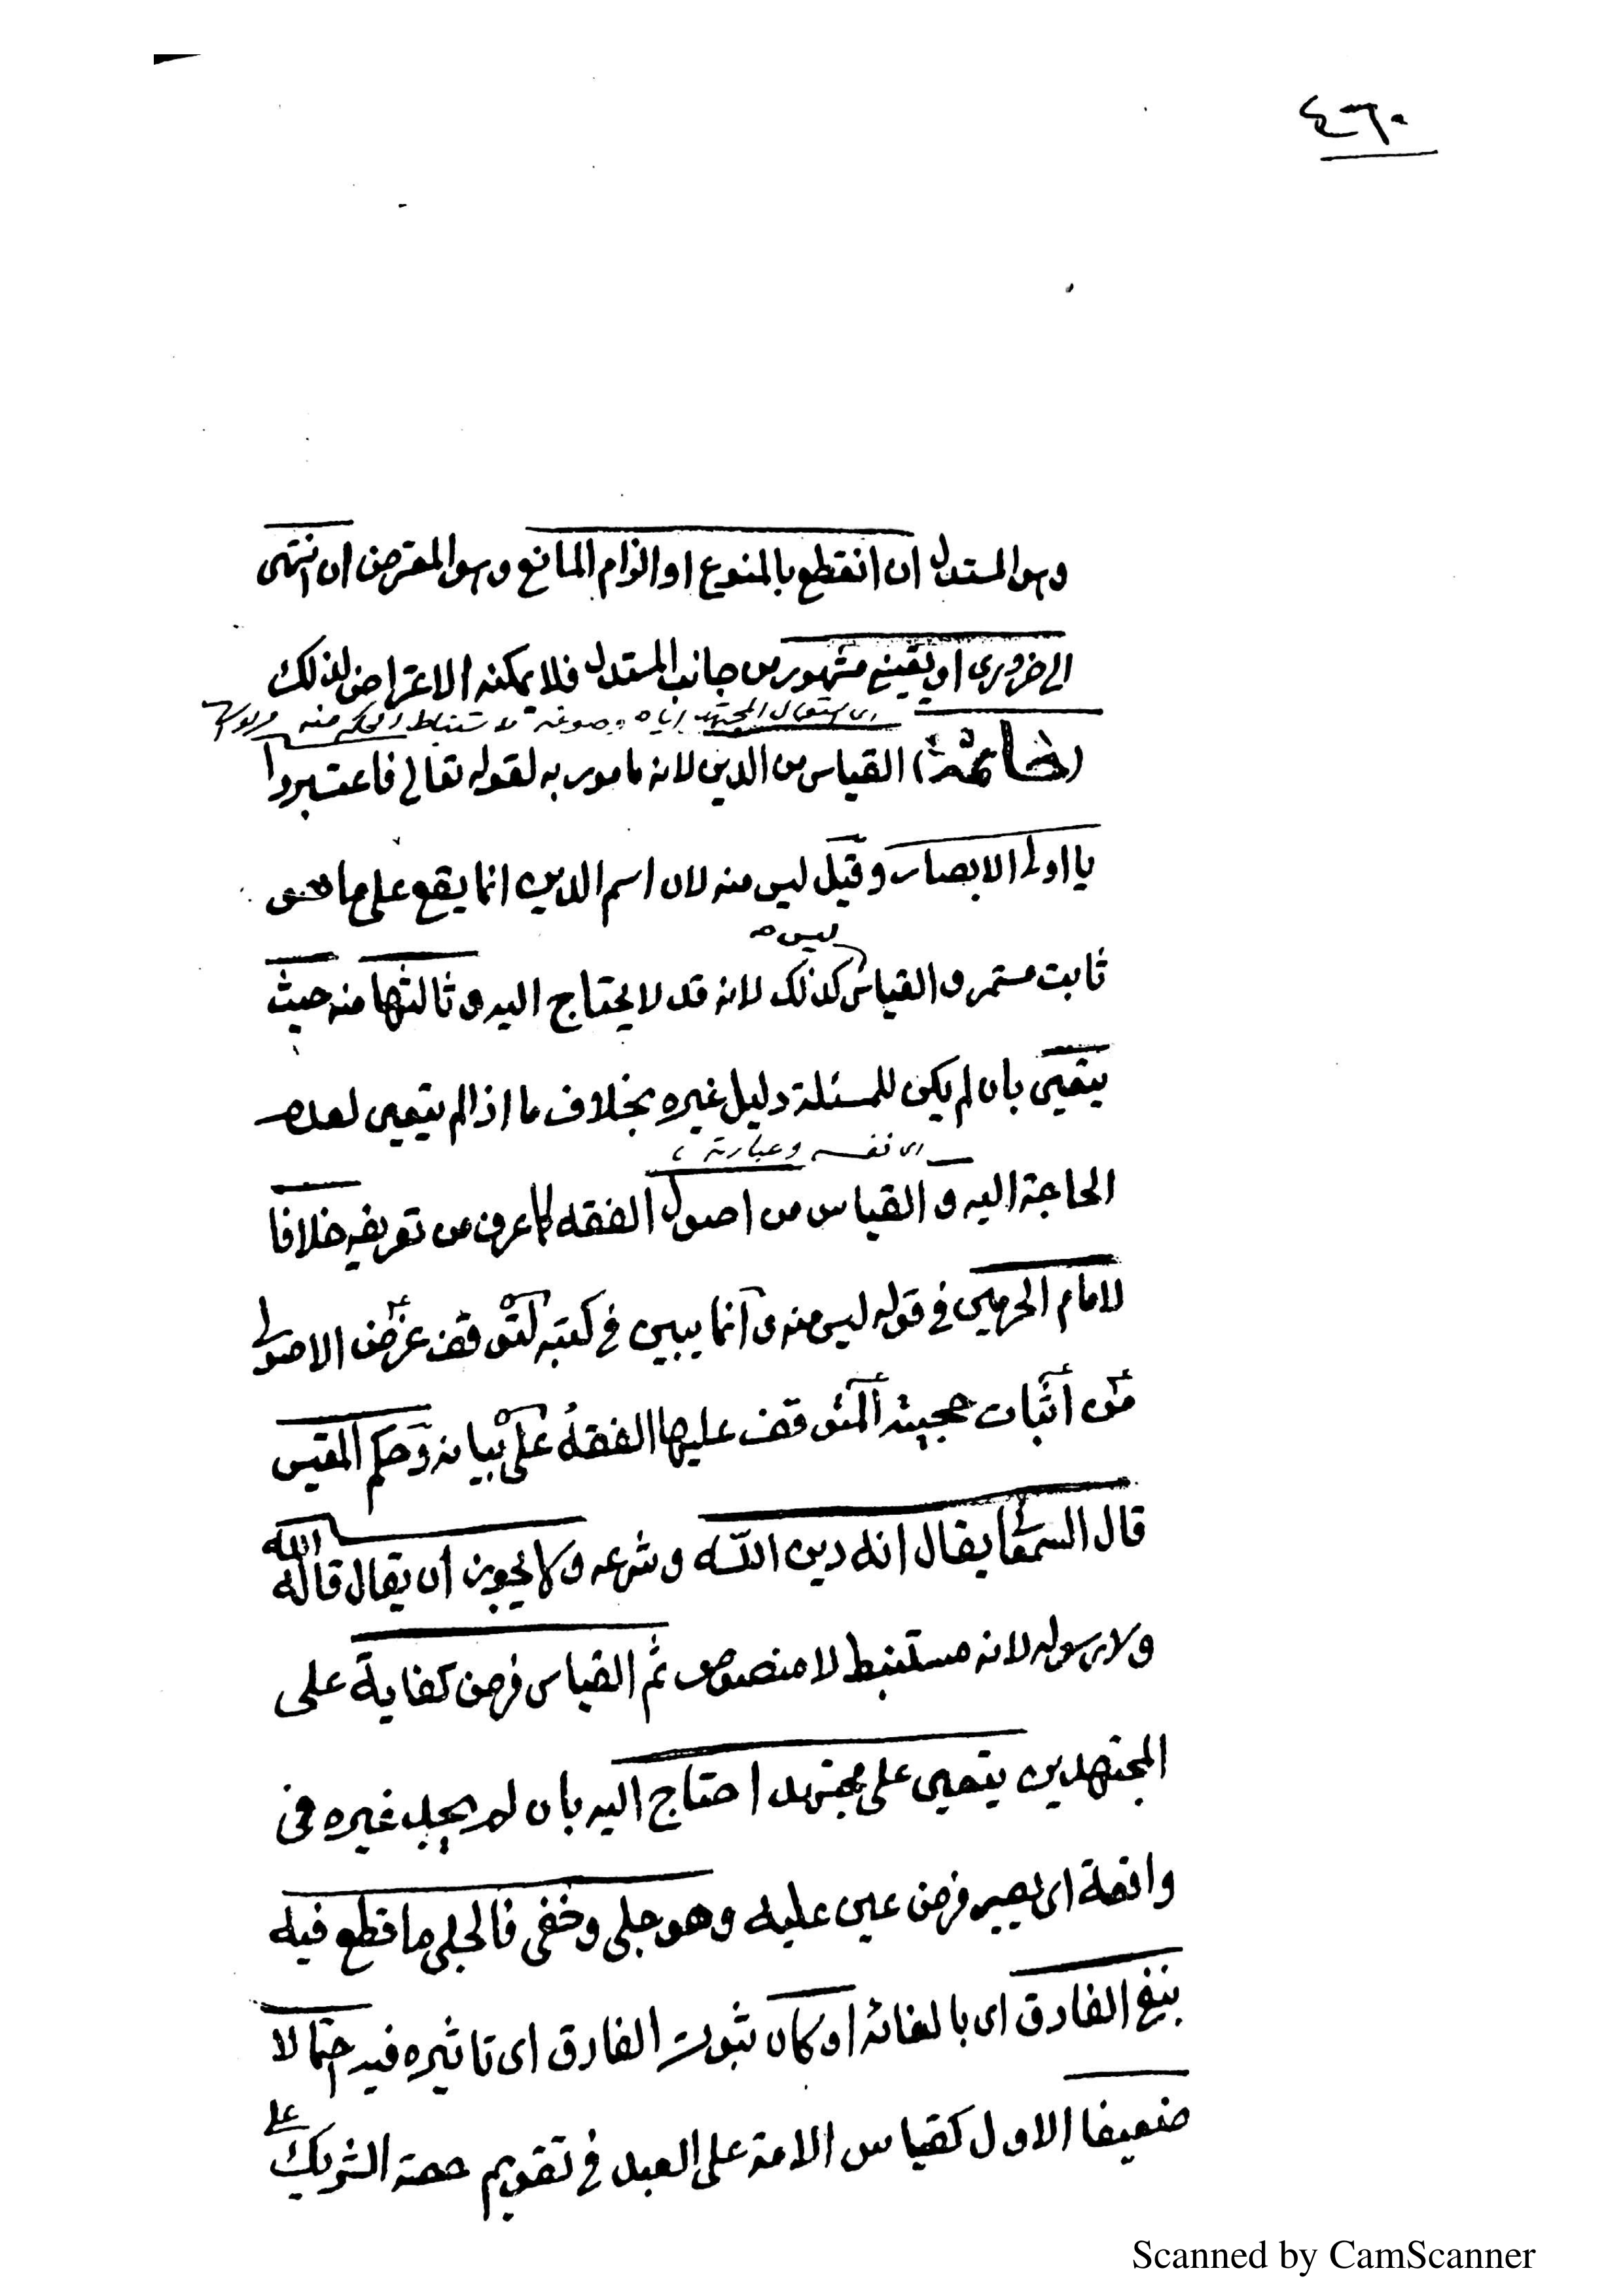 ٤٦٠
وهو المستدل ان انقطع بالمنوع او الزام المانع وهو المعترض ان انتهى
الى ضرورى او يقينى مشهور من جانب المستدل فلا يمكنه الاعتراض لذلك
اى استعمال المجتهد اياه وصوغه لاستنباط الحكم منه
(خاتمة) القياس من الدين لانه مامور به لقوله تعالى فاعتبروا
يا اولى الابصار وقيل ليس منه لان اسم الدين انما يقع على ما هو
ليس
ثابت مستمر والقياس كذلك لانه قد لا يحتاج اليه وثالثها منه حيث
يتعين بان لم يكن للمسئلة دليل غيره بخلاف ما اذا لم يتعين لعدم
اى نفسه وعبارته
الحاجة اليه والقياس من اصول الفقه كما عرف من تعريفه خلافا
لامام الحرمين فى قوله ليس منه وانما يبين فى كتبه لتوقف غرض الاصولى
من اثبات حجيته المتوقف عليها الفقه على بيانه وحكم المقيس
قال السمعانى يقال انه دين الله وشرعه ولا يجوز ان يقال قاله الله
ولا رسوله لانه مستنبط لا منصوص ثم القياس فرض كفاية على
المجتهدين يتعين على مجتهد احتاج اليه بان لم يجد غيره فى
واقعة اى يصير فرض عين عليه وهو جلى وخفى فالجلى ما قطع فيه
بنفى الفارق اى بالغائه او كان ثبوت الفارق اى تاثيره فيه احتمالا
ضعيفا الاول كقياس الامة على العبد فى تقويم حصة الشريك على
Scanned by CamScanner